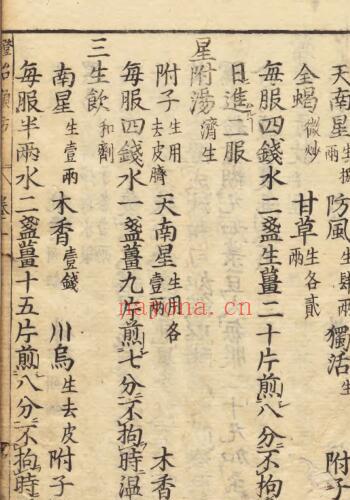 天南星生捌兩 防風生肆兩 獨活生
全蝎微炒 甘草生各貳兩 附子
每服四錢水二盞生薑二十片煎八分不
日進二服
星附湯濟生
附子生用去皮臍 天南星生用各壹兩 木香
每服四錢水一盞薑九片煎七分不拘時温
三生飲和劑
南星生壹兩 木香壹錢 川烏生去皮 附子
每服半兩水二盞薑十五片煎八分不拘時
nayona.cn